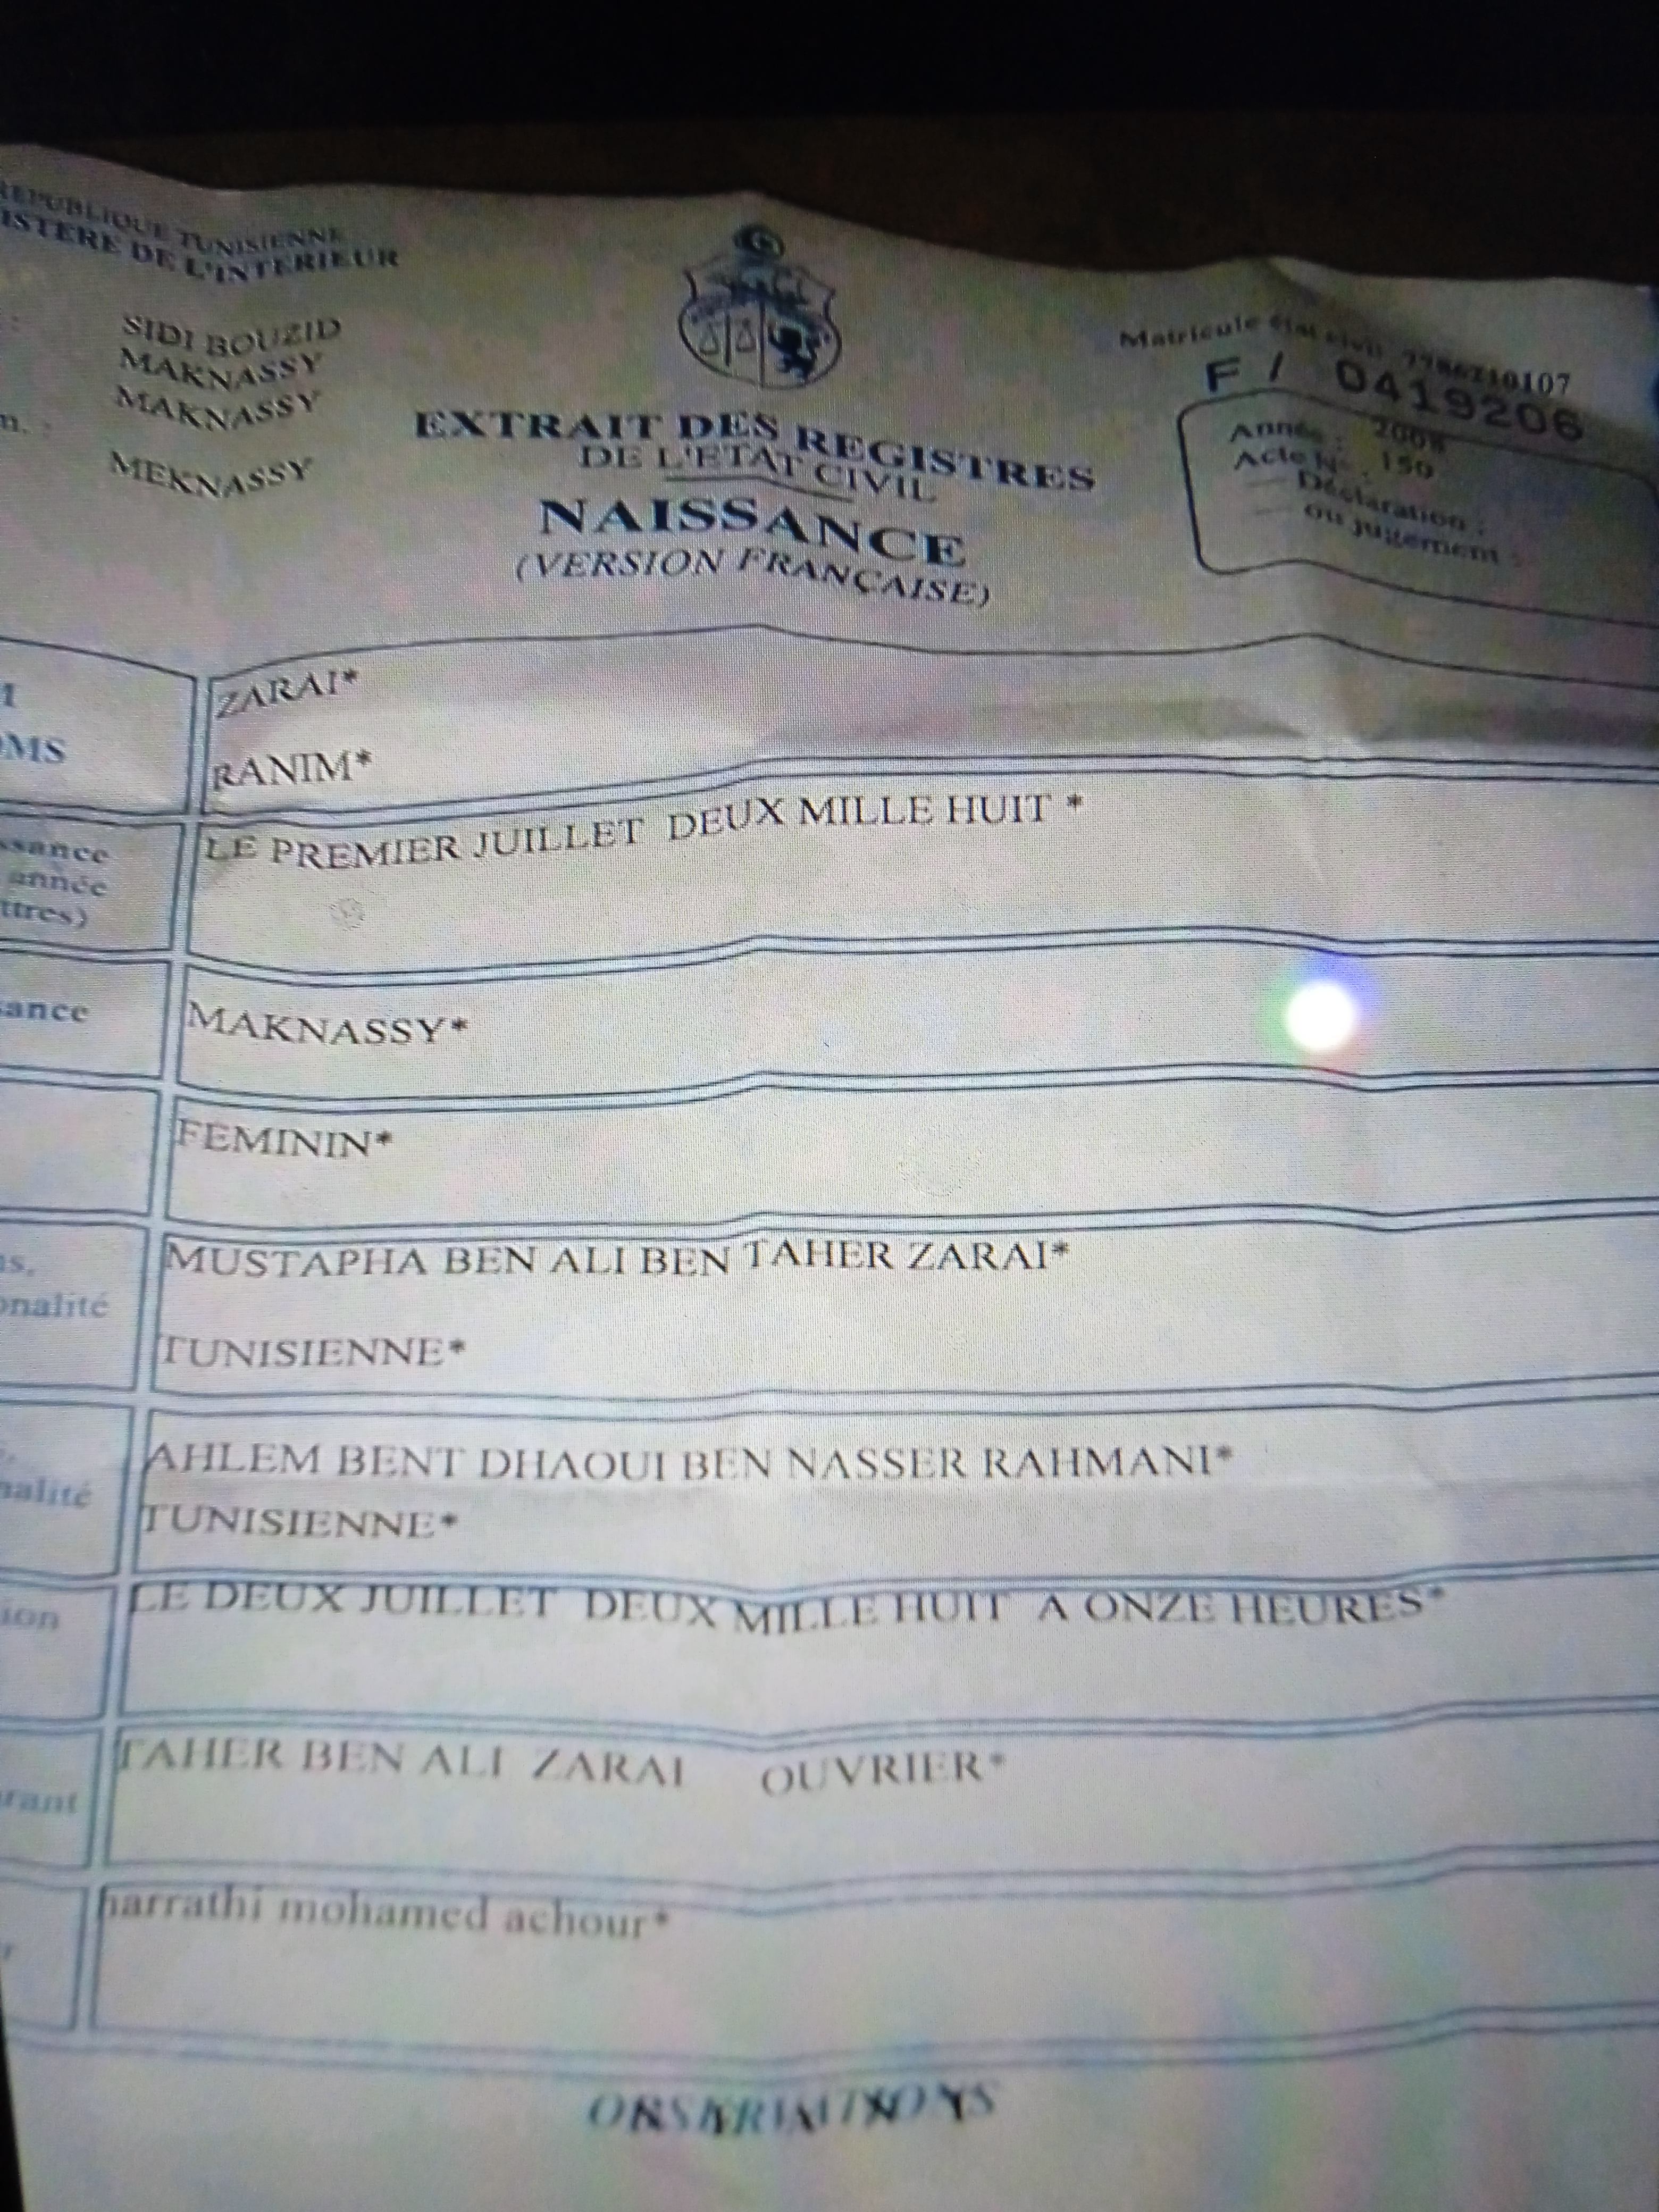 REPUBLIQUE TUNISIENNE
ISTERE DE L'INTERIEUR
SIDI BOUZID
MAKNASSY
MAKNASSY
MEKNASSY
EXTRAIT DES REGISTRES
DE L'ETAT CIVIL
NAISSANCE
(VERSION FRANÇAISE)
Matricule état civil
F / 0419206
Année : 2008
Acte N° : 150
Déclaration :
ou jugement :
ZARAI*
OMS
RANIM*
ssance
année
ttres)
LE PREMIER JUILLET DEUX MILLE HUIT *
sance
MAKNASSY*
FEMININ*
ns,
MUSTAPHA BEN ALI BEN TAHER ZARAI*
onalité
TUNISIENNE*
AHLEM BENT DHAOUI BEN NASSER RAHMANI*
nalité
TUNISIENNE*
ion
LE DEUX JUILLET DEUX MILLE HUIT A ONZE HEURES*
rant
TAHER BEN ALI ZARAI OUVRIER*
harrathi mohamed achour*
OBSERVATIONS